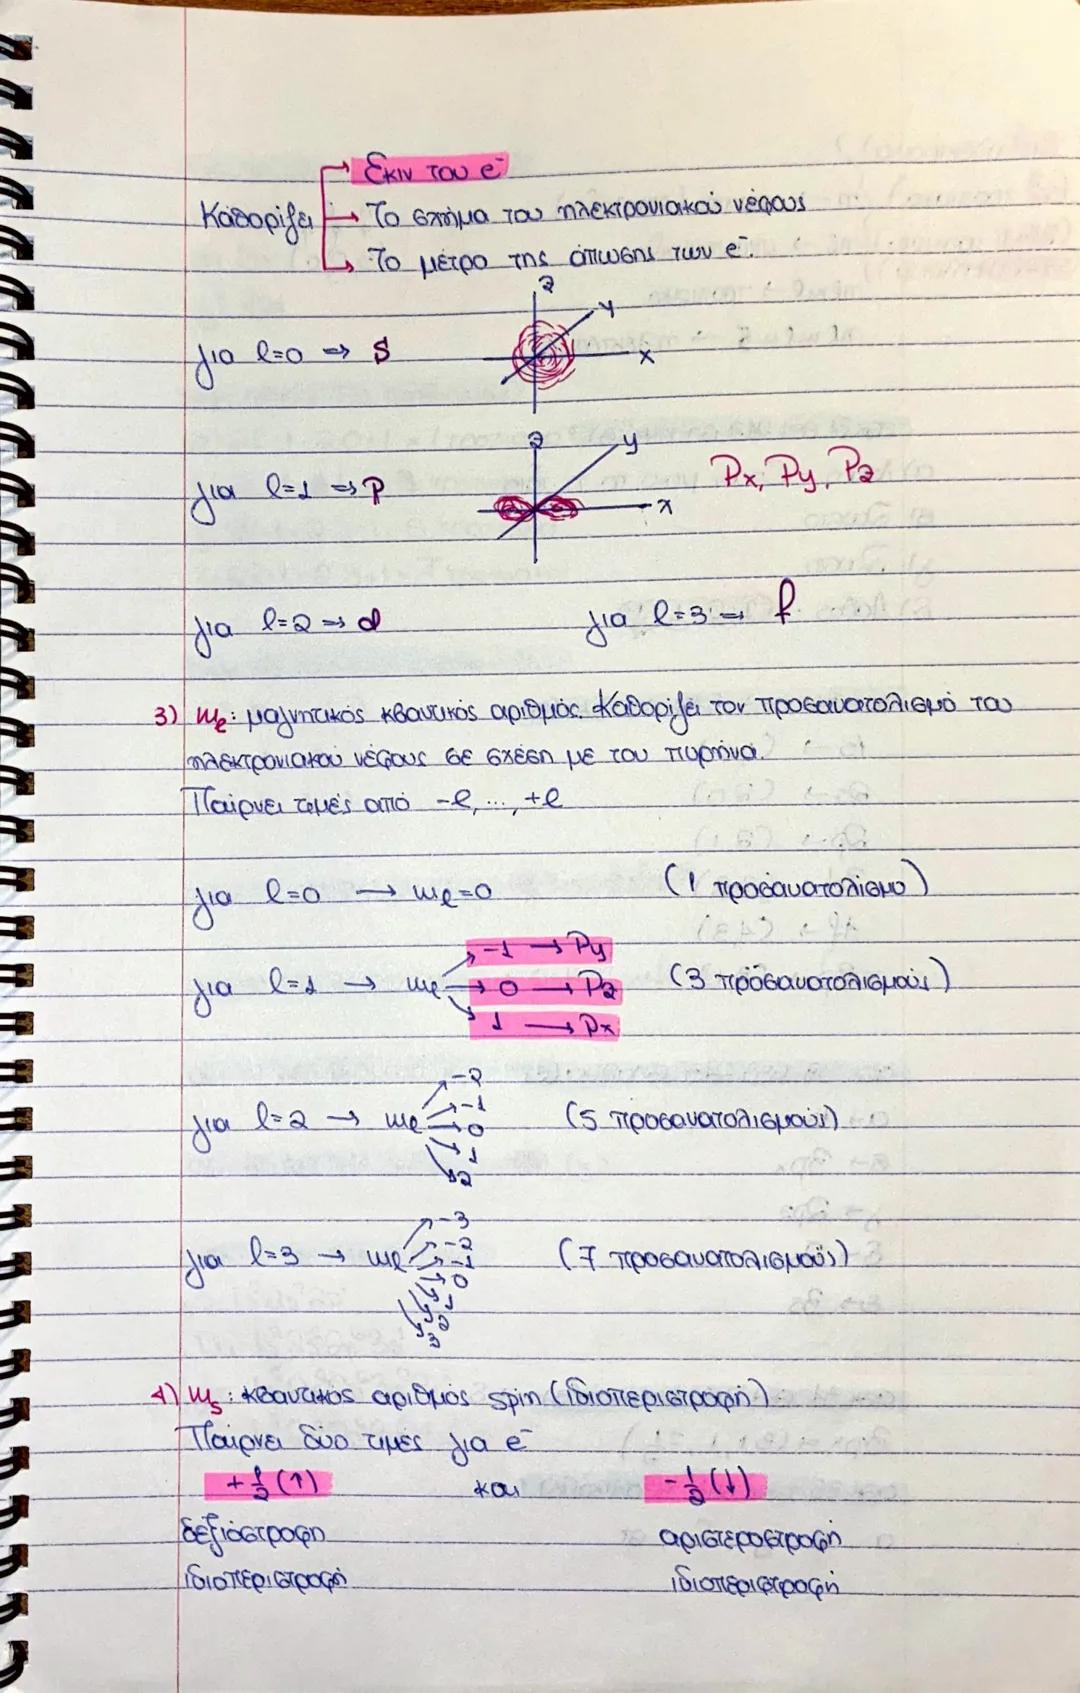 Εκιν του e⁻
Καθορίζει → Το σχήμα του ηλεκτρονιακού νέφους
Το μέτρο της άπωσης των e⁻.
z
y
x
για l=0 ⇒ s
z
y
x
για l=1 ⇒ p
Px, Py, Pz
για l=2 ⇒ d για l=3 ⇒ f
3) ml: μαγνητικός κβαντικός αριθμός. Καθορίζει τον προσανατολισμό του
ηλεκτρονιακού νέφους σε σχέση με τον πυρήνα.
Παίρνει τιμές από -l, ..., +l
για l=0 → ml=0 (1 προσανατολισμο)
-1 → Py
για l=1 → ml → 0 → Pz (3 προσανατολισμούς)
1 → Px
-2
-1
για l=2 → ml → 0 (5 προσανατολισμούς)
1
2
-3
-2
για l=3 → ml -1 (7 προσανατολισμούς)
0
1
2
3
4) ms: κβαντικός αριθμός spin (ιδιοπεριστροφή)
Παίρνει δύο τιμές για e⁻
+½ (↑) και -½ (↓)
δεξιόστροφη αριστερόστροφη
ιδιοπεριστροφή ιδιοπεριστροφή